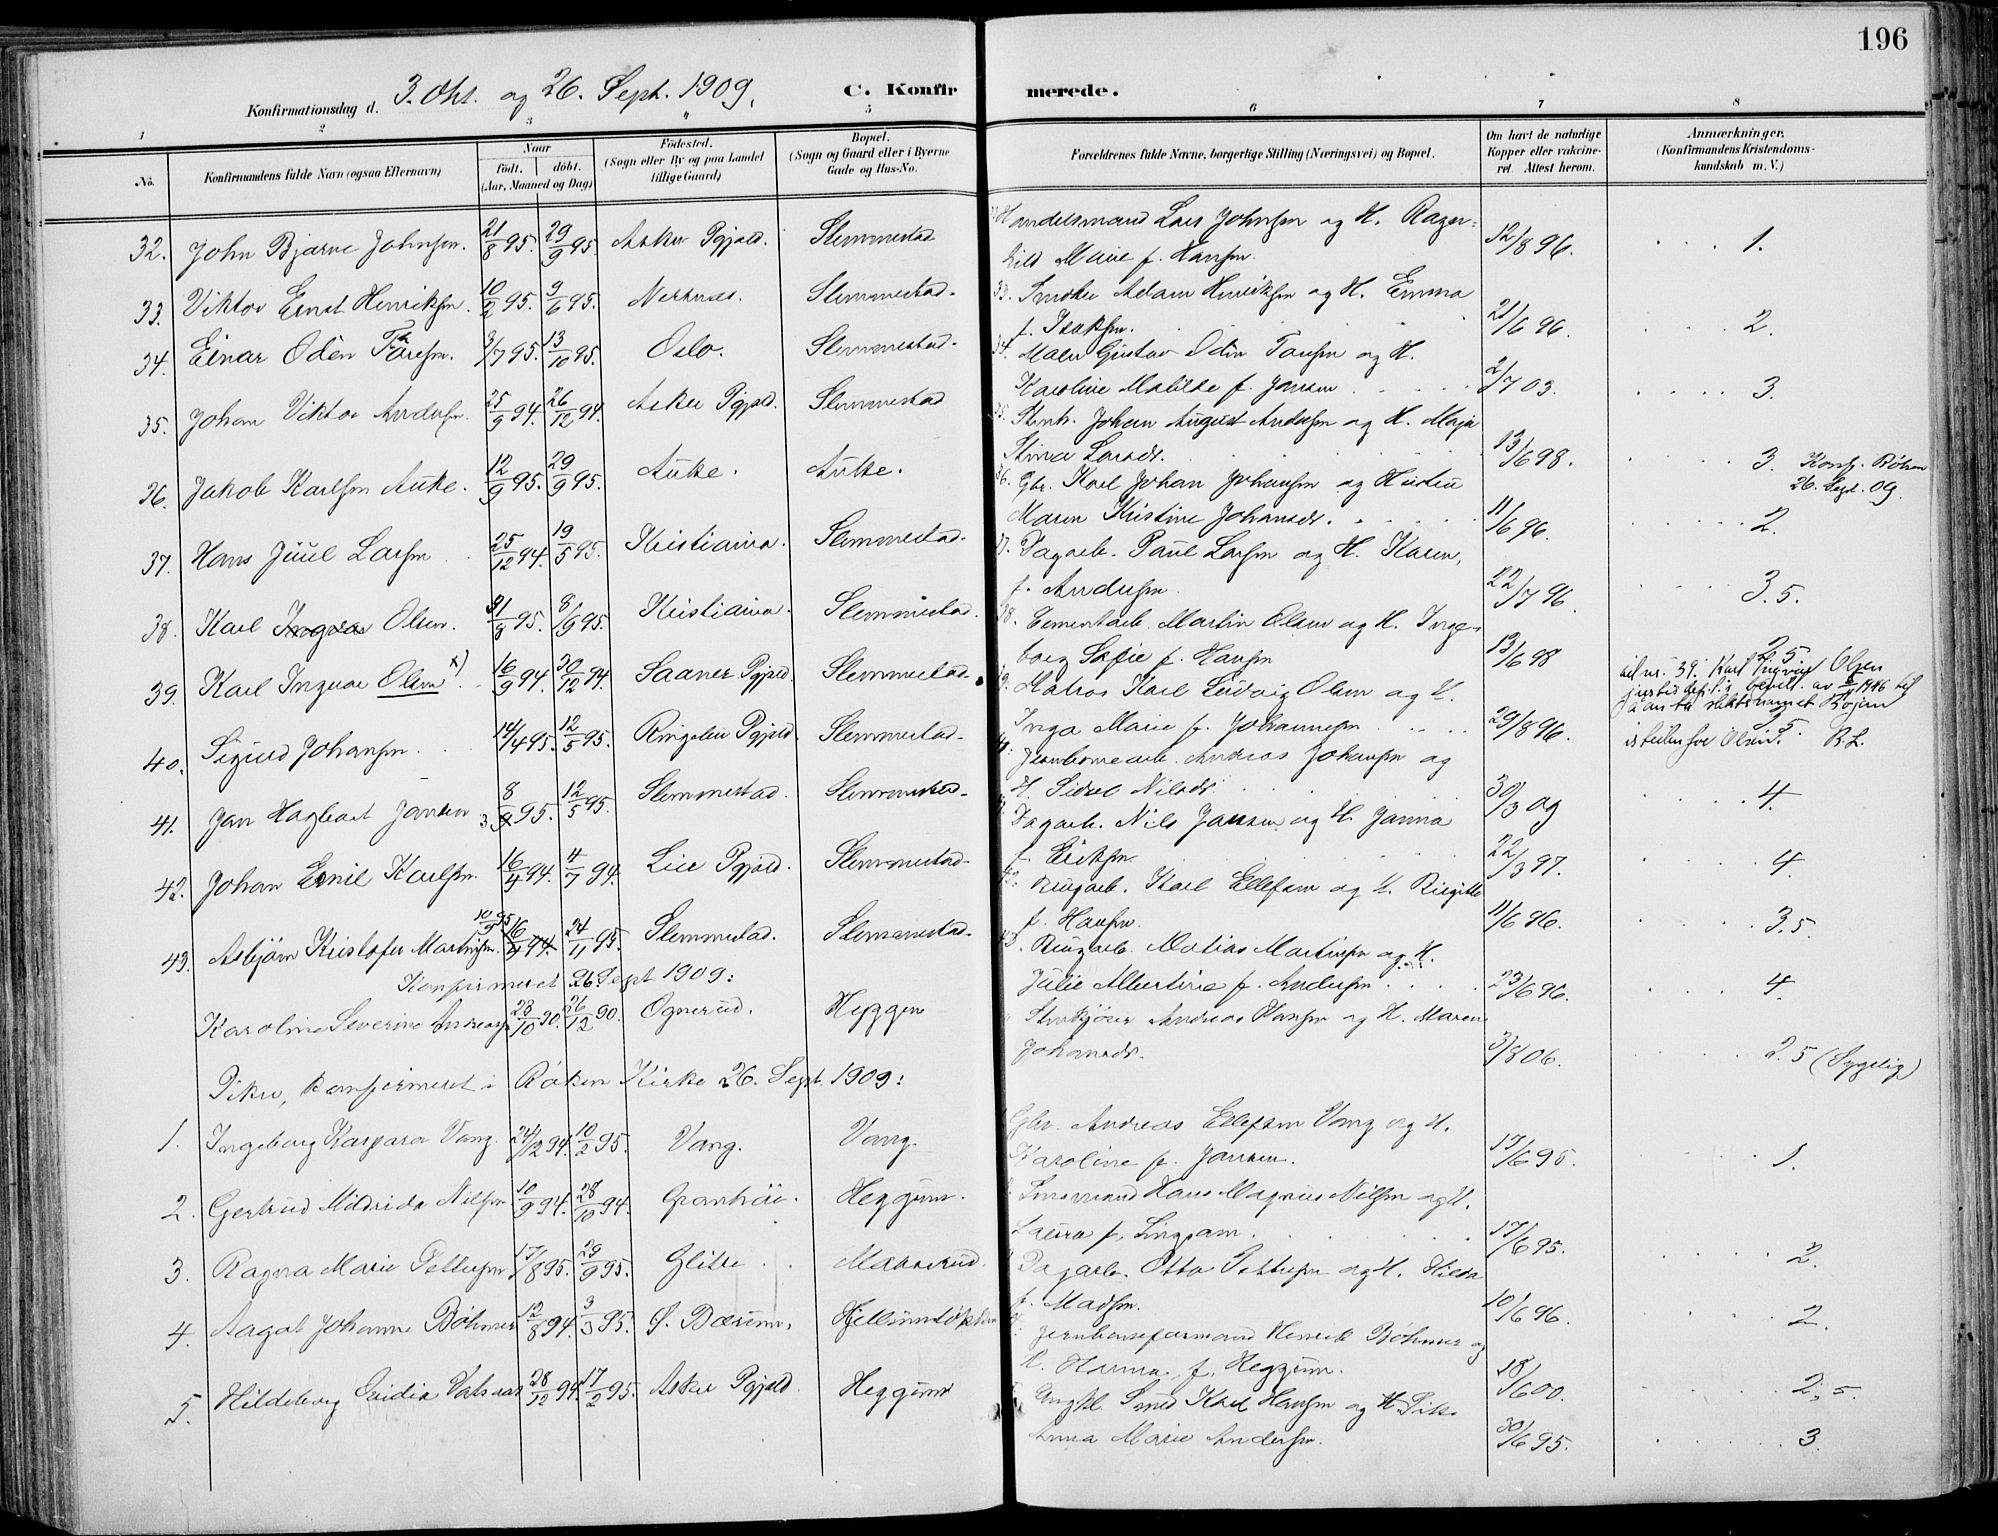 196
Konfirmationsdag d. 3. Okt. og 26. Sept. 1909.
C. Konfirmerede.
1 2 3 4 5 6 7 8
No.
Konfirmandens fulde Navn (ogsaa Efternavn)
Naar
födt. döbt.
(Aar, Maaned og Dag)
Födested.
(Sogn eller By og paa Landet
tillige Gaard)
Bopæl.
(Sogn og Gaard eller i Byerne
Gade og Hus-No.
Forældrenes fulde Navne, borgerlige Stilling (Næringsvei) og Bopæl.
Om havt de naturlige
Kopper eller vaccineret. Attest herom.
Anmærkninger.
(Konfirmandens Kristendomskundskab m. V.)
32. John Bjarne Johnsen. 21/8 95. 29/9 95. Asker Pgjæld. Slemmestad Handelsmand Lars Johnsen og H. Ragnhild Marie f. Hansen. 12/8 96. 1.
33. Viktor Ernst Henriksen. 10/2 95. 9/6 95. Nesnæs. Slemmestad. Adam Henriksen og H. Emma f. Isaksen. 21/6 96. 2.
34. Einar Odin Toresen. 3/7 95. 13/10 95. Oslo. Slemmestad. Maler Gustav Odin Toresen og H. Karoline Matilde f. Jansen 2/7 03. 3.
35. Johan Viktor Andersen. 25/9 94. 26/12 94. Asker Pgjæld. Slemmestad Johan August Andersen og H. Maja Stina Larsdr. 13/6 98. 3. Konf. Röken 26. Sept. 09.
36. Jakob Karlsen Auke. 12/9 95. 29/9 95. Auke. Auke. Gbr. Karl Johan Johansen og Hustru Maren Kristine Johansdr. 11/6 96. 2.
37. Hans Juul Larsen 25/12 94. 19/5 95. Kristiania. Slemmestad. Dagarb. Paul Larsen og H. Karen, f. Andersen. 22/7 96. 3.5.
38. Karl Olsen. 31/8 95. 8/9 95. Kristiania. Slemmestad. Cementarb. Martin Olsen og H. Ingeborg Sofie f. Hansen 13/6 98 2.5
39. Karl Ingvar Olsen x) 16/9 94. 30/12 94. Saaner Pgjæld. Slemmestad. Matros Karl Ludvig Olsen og H. Inga Marie f. Johannesen 29/8 96.
ad nr. 39. Karl Ingvar Olsen
justisdep.s bevill. av 1946 til
å anta slektsnavnet Bøjum
istedenfor Olsen. R.L.
40. Sigurd Johansen 14/4 95. 12/5 95. Ringebu Pgjæld. Slemmestad. Jernbanearb. Andreas Johansen og H. Sidsel Nilsdr. 30/3 09 4.
41. Jan Hagbart Jansen 8/3 95. 12/5 95. Slemmestad. Slemmestad. Dagarb. Nils Jansen og H. Janna f. Eriksen. 22/3 97. 4.
42. Johan Emil Karlsen. 16/4 94. 4/7 94. Lier Pgjæld. Slemmestad. Brugarb. Karl Ellefsen og H. Birgitte f. Hansen. 11/6 96. 3.5.
43. Asbjörn Kristofer Martinsen. 10/9 95 16/4 94. 24/11 95. Slemmestad. Slemmestad. Brugarb. Matias Martinsen og H. Julie Albertine f. Andersen. 23/6 96. 4.
Konfirmeret 26. Sept 1909:
Karoline Severine Andreasen 23/10 90. 26/12 90. Ognerud. Heggen Andreas Hansen og H. Maren Johansdr. 3/8 06. 2.5 (Sygelig)
Piker, konfirmeret i Röken Kirke 26. Sept. 1909:
1. Ingeborg Kaspara Vang. 24/12 94. 10/2 95. Vang. Vang. Gbr. Andreas Ellefsen Vang og H. Karoline f. Jansen. 17/6 95. 1.
2. Gertrud Mildrida Nilsen 10/9 94. 28/10 94. Heggum. Hans Magnus Nilsen og H. Laura f. 17/6 95. 2.
3. Ragna Marie Pettersen 17/8 95. 29/9 95. Glitre Dagarb. Otto Pettersen og H. Hilda f. Madsen. 10/6 96. 2.
4. Aagot Johanne Böhmer 12/8 94. 3/3 95. Ö. Bærum. Jernbaneformand Henrik Böhmer og H. Hanna f. Heggum. 18/6 00. 2.5
5. Hildeborg Valsnæs 28/12 94. 17/2 95. Asker Pgjæld. Heggum Ungkl. Smed Karl Hansen og Pike Anna Marie Andersen. 30/6 95. 3